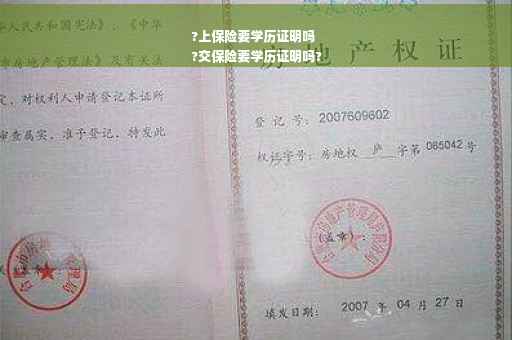 ?上保险要学历证明吗
?交保险要学历证明吗?
华人民共和国宪法》、《中华
市房地产管理法》及有关法
定，对权利人申请登记本证所
审查属实，准予登记，特发此
房地产权证
登记号：2007609602
权证字号：房地权 庐 字第 085042 号
(盖章)：
填发日期：2007 年 04 月 27 日